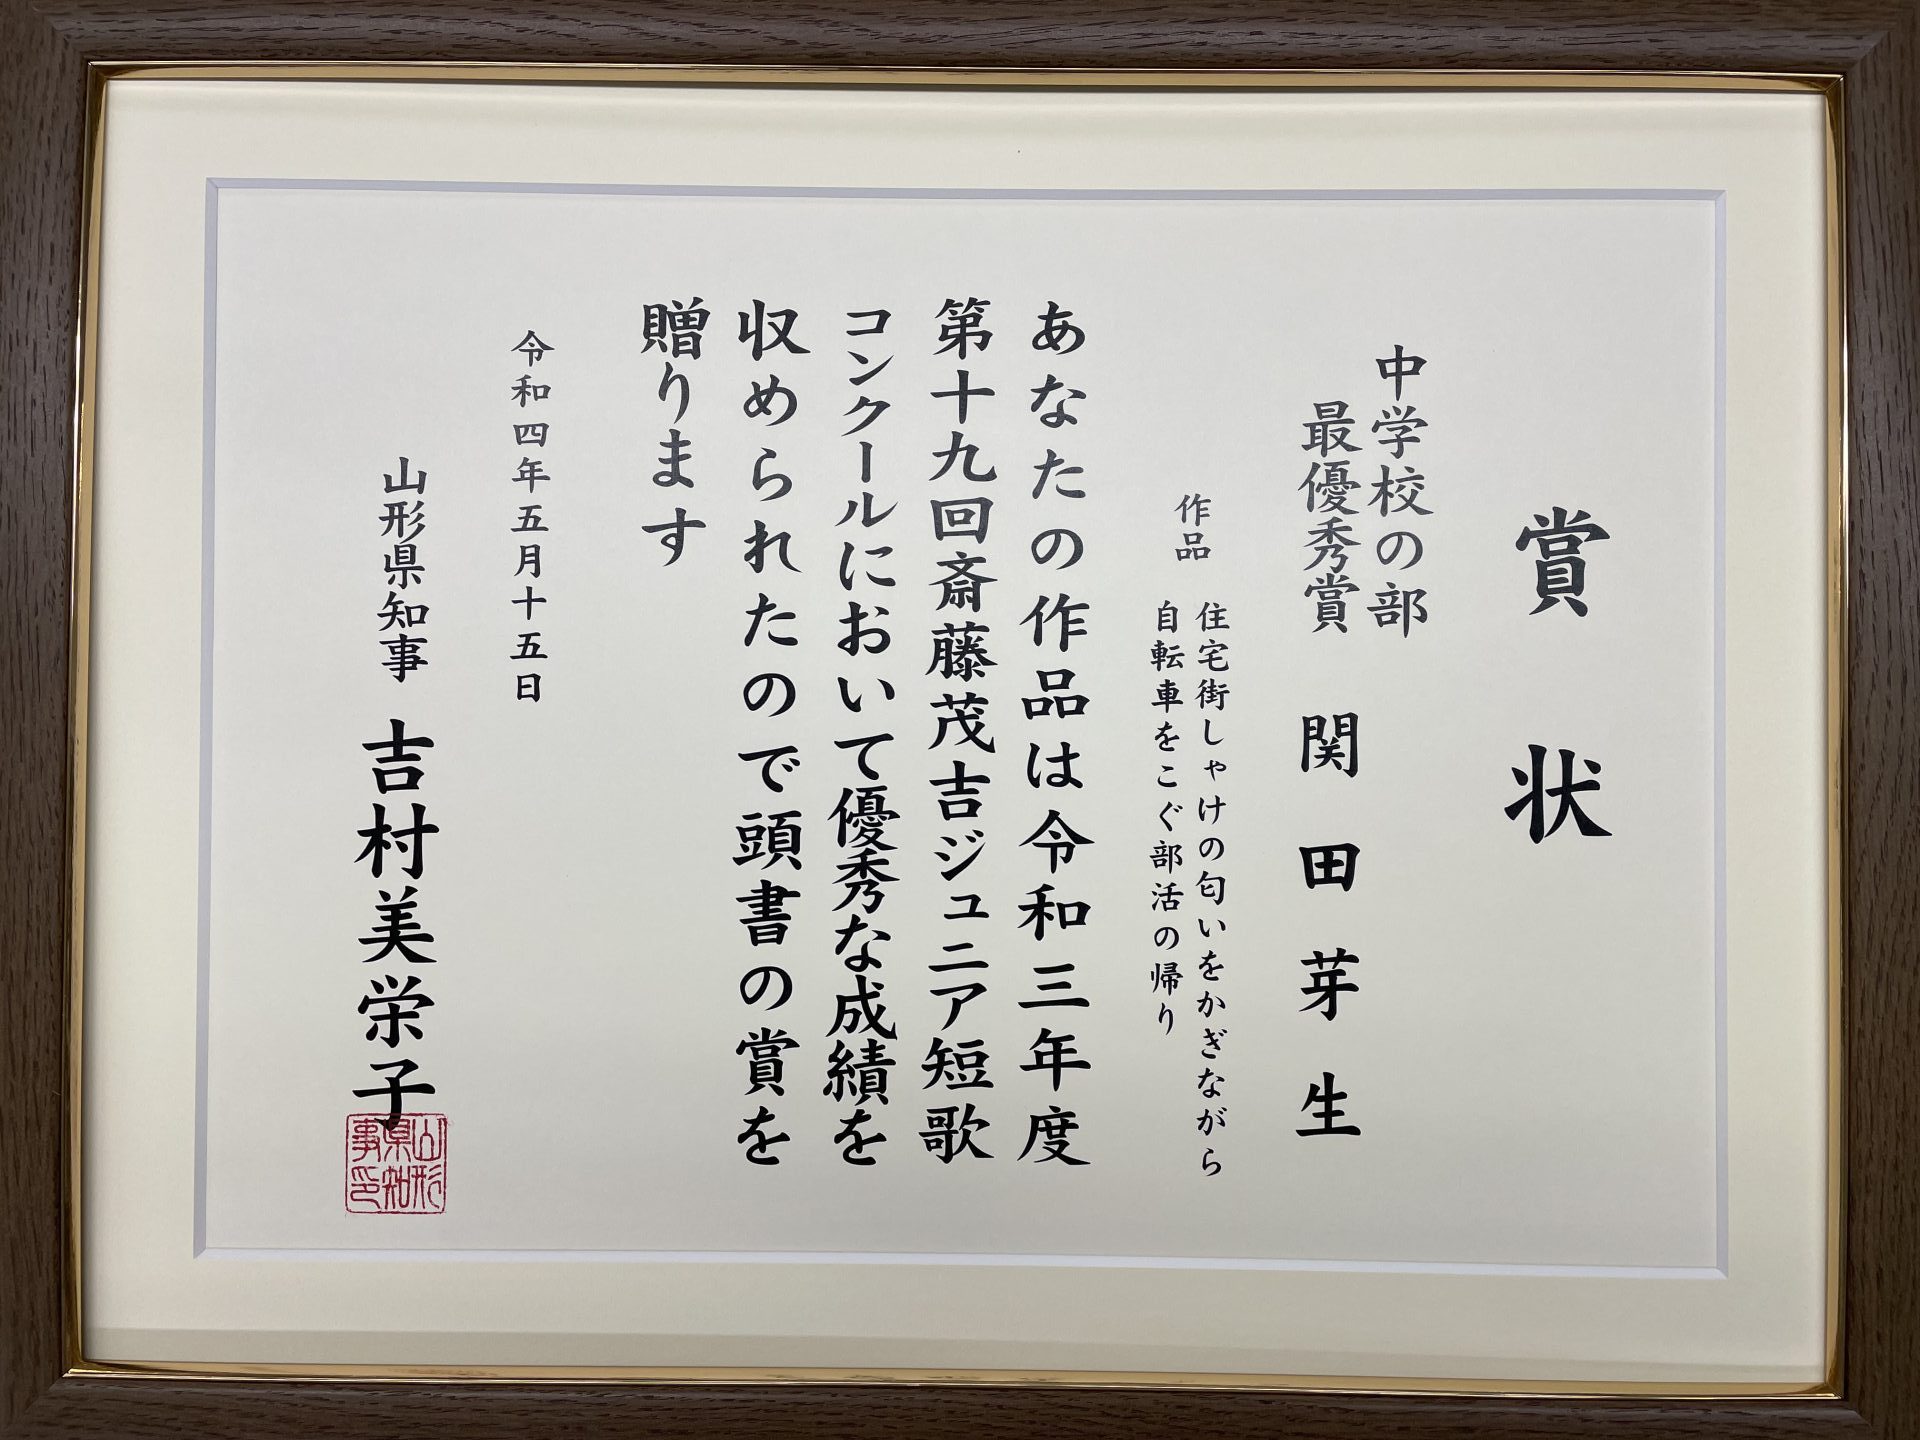 賞状
中学校の部
最優秀賞 関田芽生
作品 住宅街しゃけの匂いをかぎながら
自転車をこぐ部活の帰り
あなたの作品は令和三年度
第十九回斎藤茂吉ジュニア短歌
コンクールにおいて優秀な成績を
収められたので頭書の賞を
贈ります
令和四年五月十五日
山形県知事 吉村美栄子
山形
県知
事印